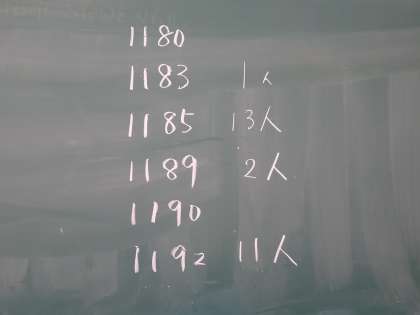 1180
1183 1人
1185 13人
1189 2人
1190
1192 11人